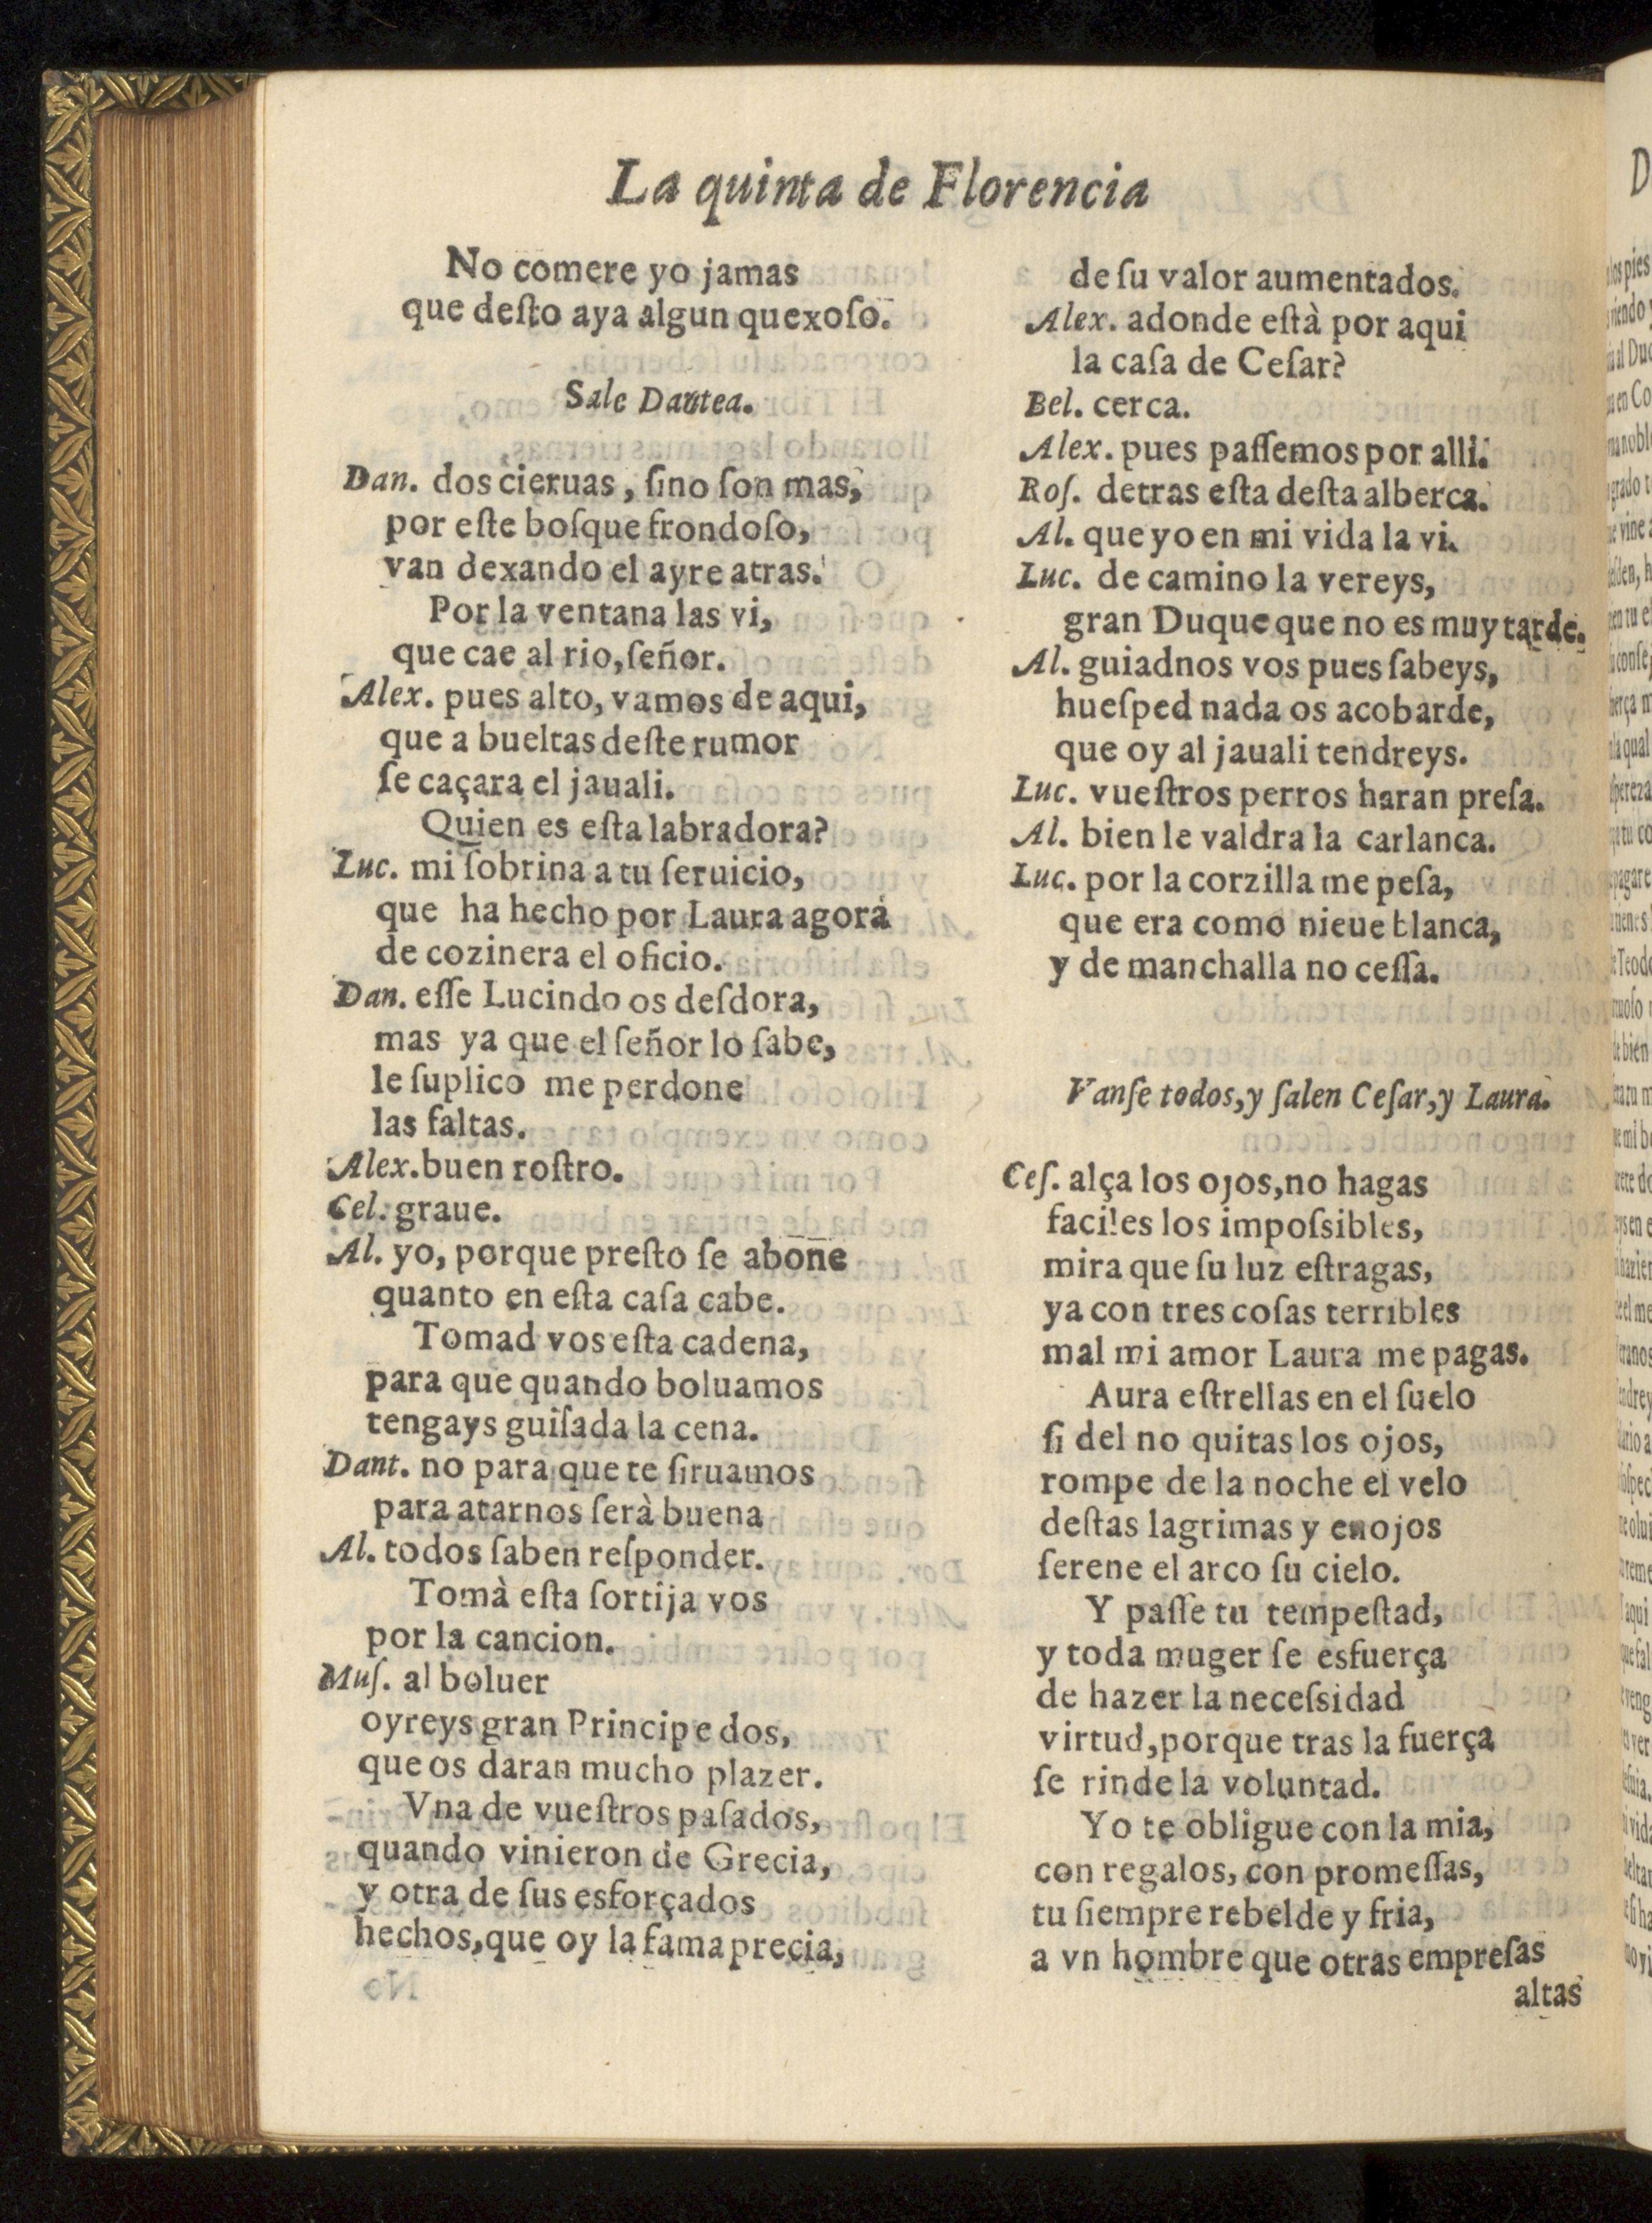 La quinta de Florencia
No comere yo jamas
que deſto aya algun quexoſo.
Sale Dantea.
Dan. dos cieruas, ſino ſon mas,
por eſte boſque frondoſo,
van dexando el ayre atras.
Por la ventana las vi,
que cae al rio, ſeñor.
Alex. pues alto, vamos de aqui,
que a bueltas deſte rumor
ſe caçara el jauali.
Quien es eſta labradora?
Luc. mi ſobrina a tu ſeruicio,
que ha hecho por Laura agora
de cozinera el oficio.
Dan. eſſe Lucindo os deſdora,
mas ya que el ſeñor lo ſabe,
le ſuplico me perdone
las faltas.
Alex. buen roſtro.
Cel. graue.
Al. yo, porque preſto ſe abone
quanto en eſta caſa cabe.
Tomad vos eſta cadena,
para que quando boluamos
tengays guiſada la cena.
Dant. no para que te ſiruamos
para atarnos ſerà buena
Al. todos ſaben reſponder.
Tomà eſta ſortija vos
por la cancion.
Muſ. al boluer
oyreys gran Principe dos,
que os daran mucho plazer.
Vna de vueſtros paſados,
quando vinieron de Grecia,
y otra de ſus esforçados
hechos, que oy la fama precia,
de ſu valor aumentados.
Alex. adonde eſtà por aqui
la caſa de Ceſar?
Bel. cerca.
Alex. pues paſſemos por alli.
Roſ. detras eſta deſta alberca.
Al. que yo en mi vida la vi.
Luc. de camino la vereys,
gran Duque que no es muy tarde.
Al. guiadnos vos pues ſabeys,
hueſped nada os acobarde,
que oy al jauali tendreys.
Luc. vueſtros perros haran preſa.
Al. bien le valdra la carlanca.
Luc. por la corzilla me peſa,
que era como nieue blanca,
y de manchalla no ceſſa.
Vanſe todos, y ſalen Ceſar, y Laura.
Ceſ. alça los ojos, no hagas
faciles los impoſsibles,
mira que ſu luz eſtragas,
ya con tres coſas terribles
mal mi amor Laura me pagas.
Aura eſtrellas en el ſuelo
ſi del no quitas los ojos,
rompe de la noche el velo
deſtas lagrimas y enojos
ſerene el arco ſu cielo.
Y paſſe tu tempeſtad,
y toda muger ſe esfuerça
de hazer la neceſsidad
virtud, porque tras la fuerça
ſe rinde la voluntad.
Yo te obligue con la mia,
con regalos, con promeſſas,
tu ſiempre rebelde y fria,
a vn hombre que otras empreſas
altas